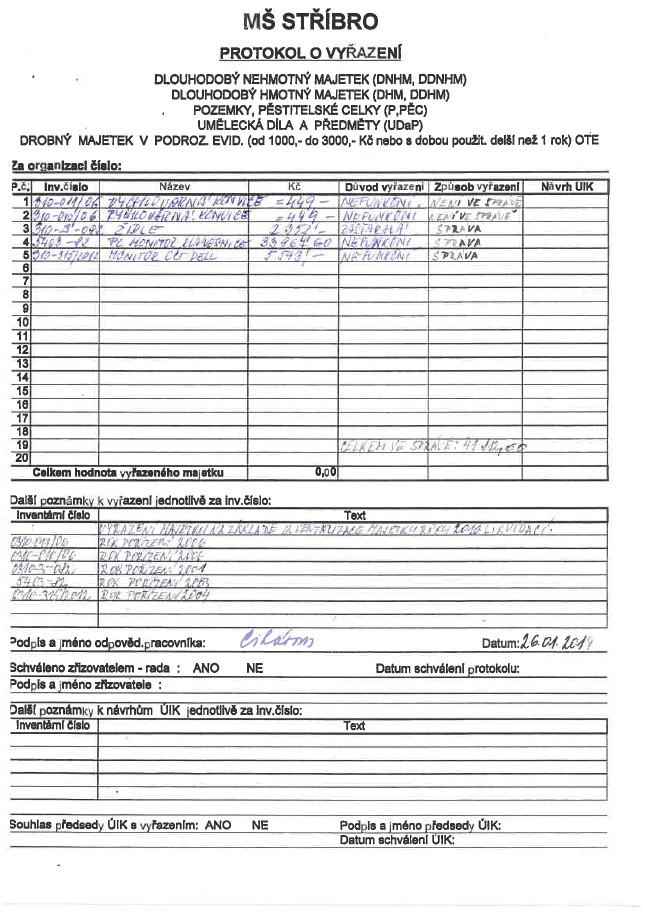 MŠ STŘÍBRO
PROTOKOL O VYŘAZENÍ
DLOUHODOBÝ NEHMOTNÝ MAJETEK (DNHM, DDNHM)
DLOUHODOBÝ HMOTNÝ MAJETEK (DHM, DDHM)
POZEMKY, PĚSTITELSKÉ CELKY (P,PĚC)
UMĚLECKÁ DÍLA A PŘEDMĚTY (UDaP)
DROBNÝ MAJETEK V PODROZ. EVID. (od 1000,- do 3000,- Kč nebo s dobou použit. delší než 1 rok) OTE
Za organizaci číslo:
P.č. Inv.číslo Název Kč Důvod vyřazení Způsob vyřazení Návrh ÚIK
1 310-011/06 RYCHLOVARNÁ KONVICE =449,- NEFUNKČNÍ NENÍ VE SPRÁVĚ
2 310-010/06 RYCHLOVARNÁ KONVICE =449,- NEFUNKČNÍ NENÍ VE SPRÁVĚ
3 ŽIDLE ZASTARALÁ SPRÁVA
4 5403-82 PC MONITOR KLÁVESNICE NEFUNKČNÍ SPRÁVA
5 310-315/2012 MONITOR CRT DELL NEFUNKČNÍ SPRÁVA
6
7
8
9
10
11
12
13
14
15
16
17
18
19 CELKEM VE SPRÁVĚ:
20
Celkem hodnota vyřazeného majetku 0,00
Další poznámky k vyřazení jednotlivě za inv.číslo:
Inventární číslo Text
VYŘAZENÍ MAJETKU NA ZÁKLADĚ INVENTARIZACE MAJETKU ROKU LIKVIDACÍ.
0310-011/06 ROK POŘÍZENÍ 2006
0310-010/06 ROK POŘÍZENÍ 2006
ROK POŘÍZENÍ 2001
5403-82 ROK POŘÍZENÍ 2003
0310-315/2012 ROK POŘÍZENÍ 2004
Podpis a jméno odpověd.pracovníka: Datum: 26.01.2017
Schváleno zřizovatelem - rada : ANO NE Datum schválení protokolu:
Podpis a jméno zřizovatele :
Další poznámky k návrhům ÚIK jednotlivě za inv.číslo:
Inventární číslo Text
Souhlas předsedy ÚIK s vyřazením: ANO NE Podpis a jméno předsedy ÚIK:
Datum schválení ÚIK: